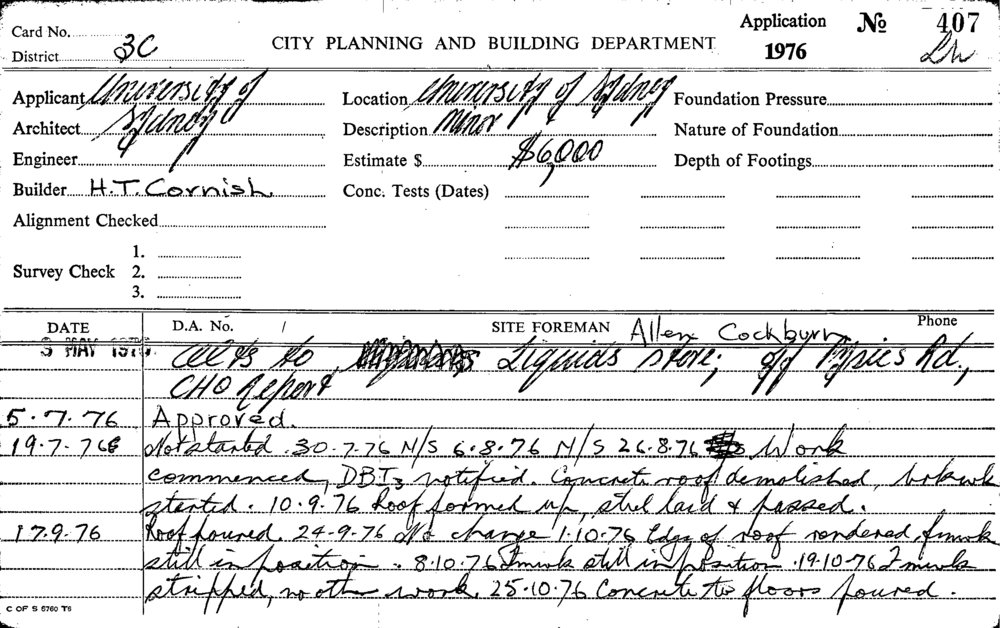 Card No.
District 3C
CITY PLANNING AND BUILDING DEPARTMENT
Application No 407
1976
Applicant University of
Architect Sydney
Engineer
Builder H.T. Cornish
Alignment Checked
Survey Check 1.
2.
3.
Location University of Sydney
Description Minor
Estimate $ $6,000
Conc. Tests (Dates)
Foundation Pressure
Nature of Foundation
Depth of Footings
DATE D.A. No. / SITE FOREMAN Allen Cockburn Phone
3 MAY 1976 to Liquids store; off Rd.,
CHO Report
5.7.76 Approved.
19.7.76 Not started. 30.7.76 N/S 6.8.76 N/S 26.8.76 Work
commenced, DBI notified. Concrete roof demolished, brkwk
started. 10.9.76 Roof formed up, steel laid & passed.
17.9.76 Roof poured. 24-9-76 No change 1.10.76 Edge of roof rendered, fmwk
still in position. 8.10.76 Fmwk still in position. 19.10.76 Fmwk
stripped, no other work. 25.10.76 Concrete to floors poured.
C OF S 6760 T6